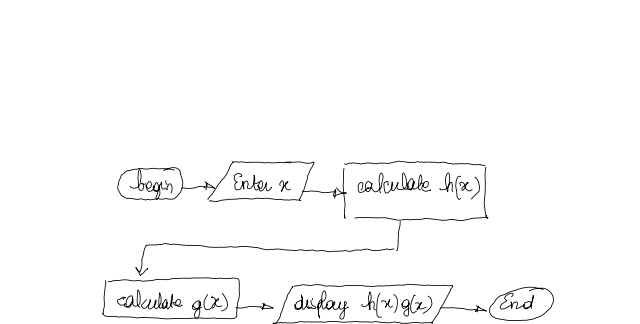 begin
Enter x
calculate h(x)
calculate g(x)
display h(x)g(x)
End